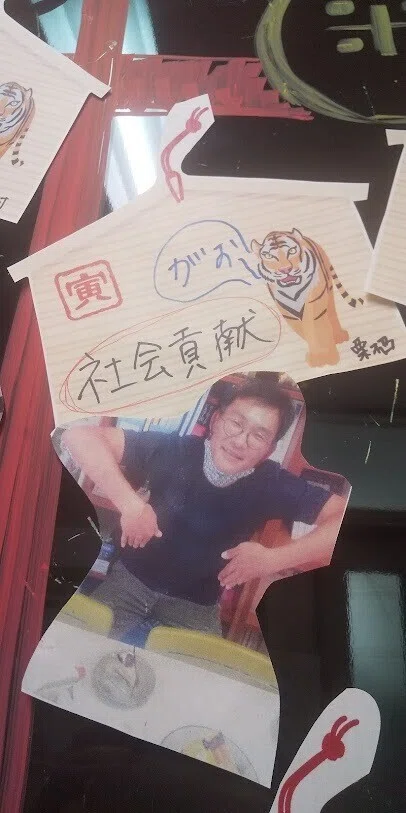 がおー
寅
社会貢献